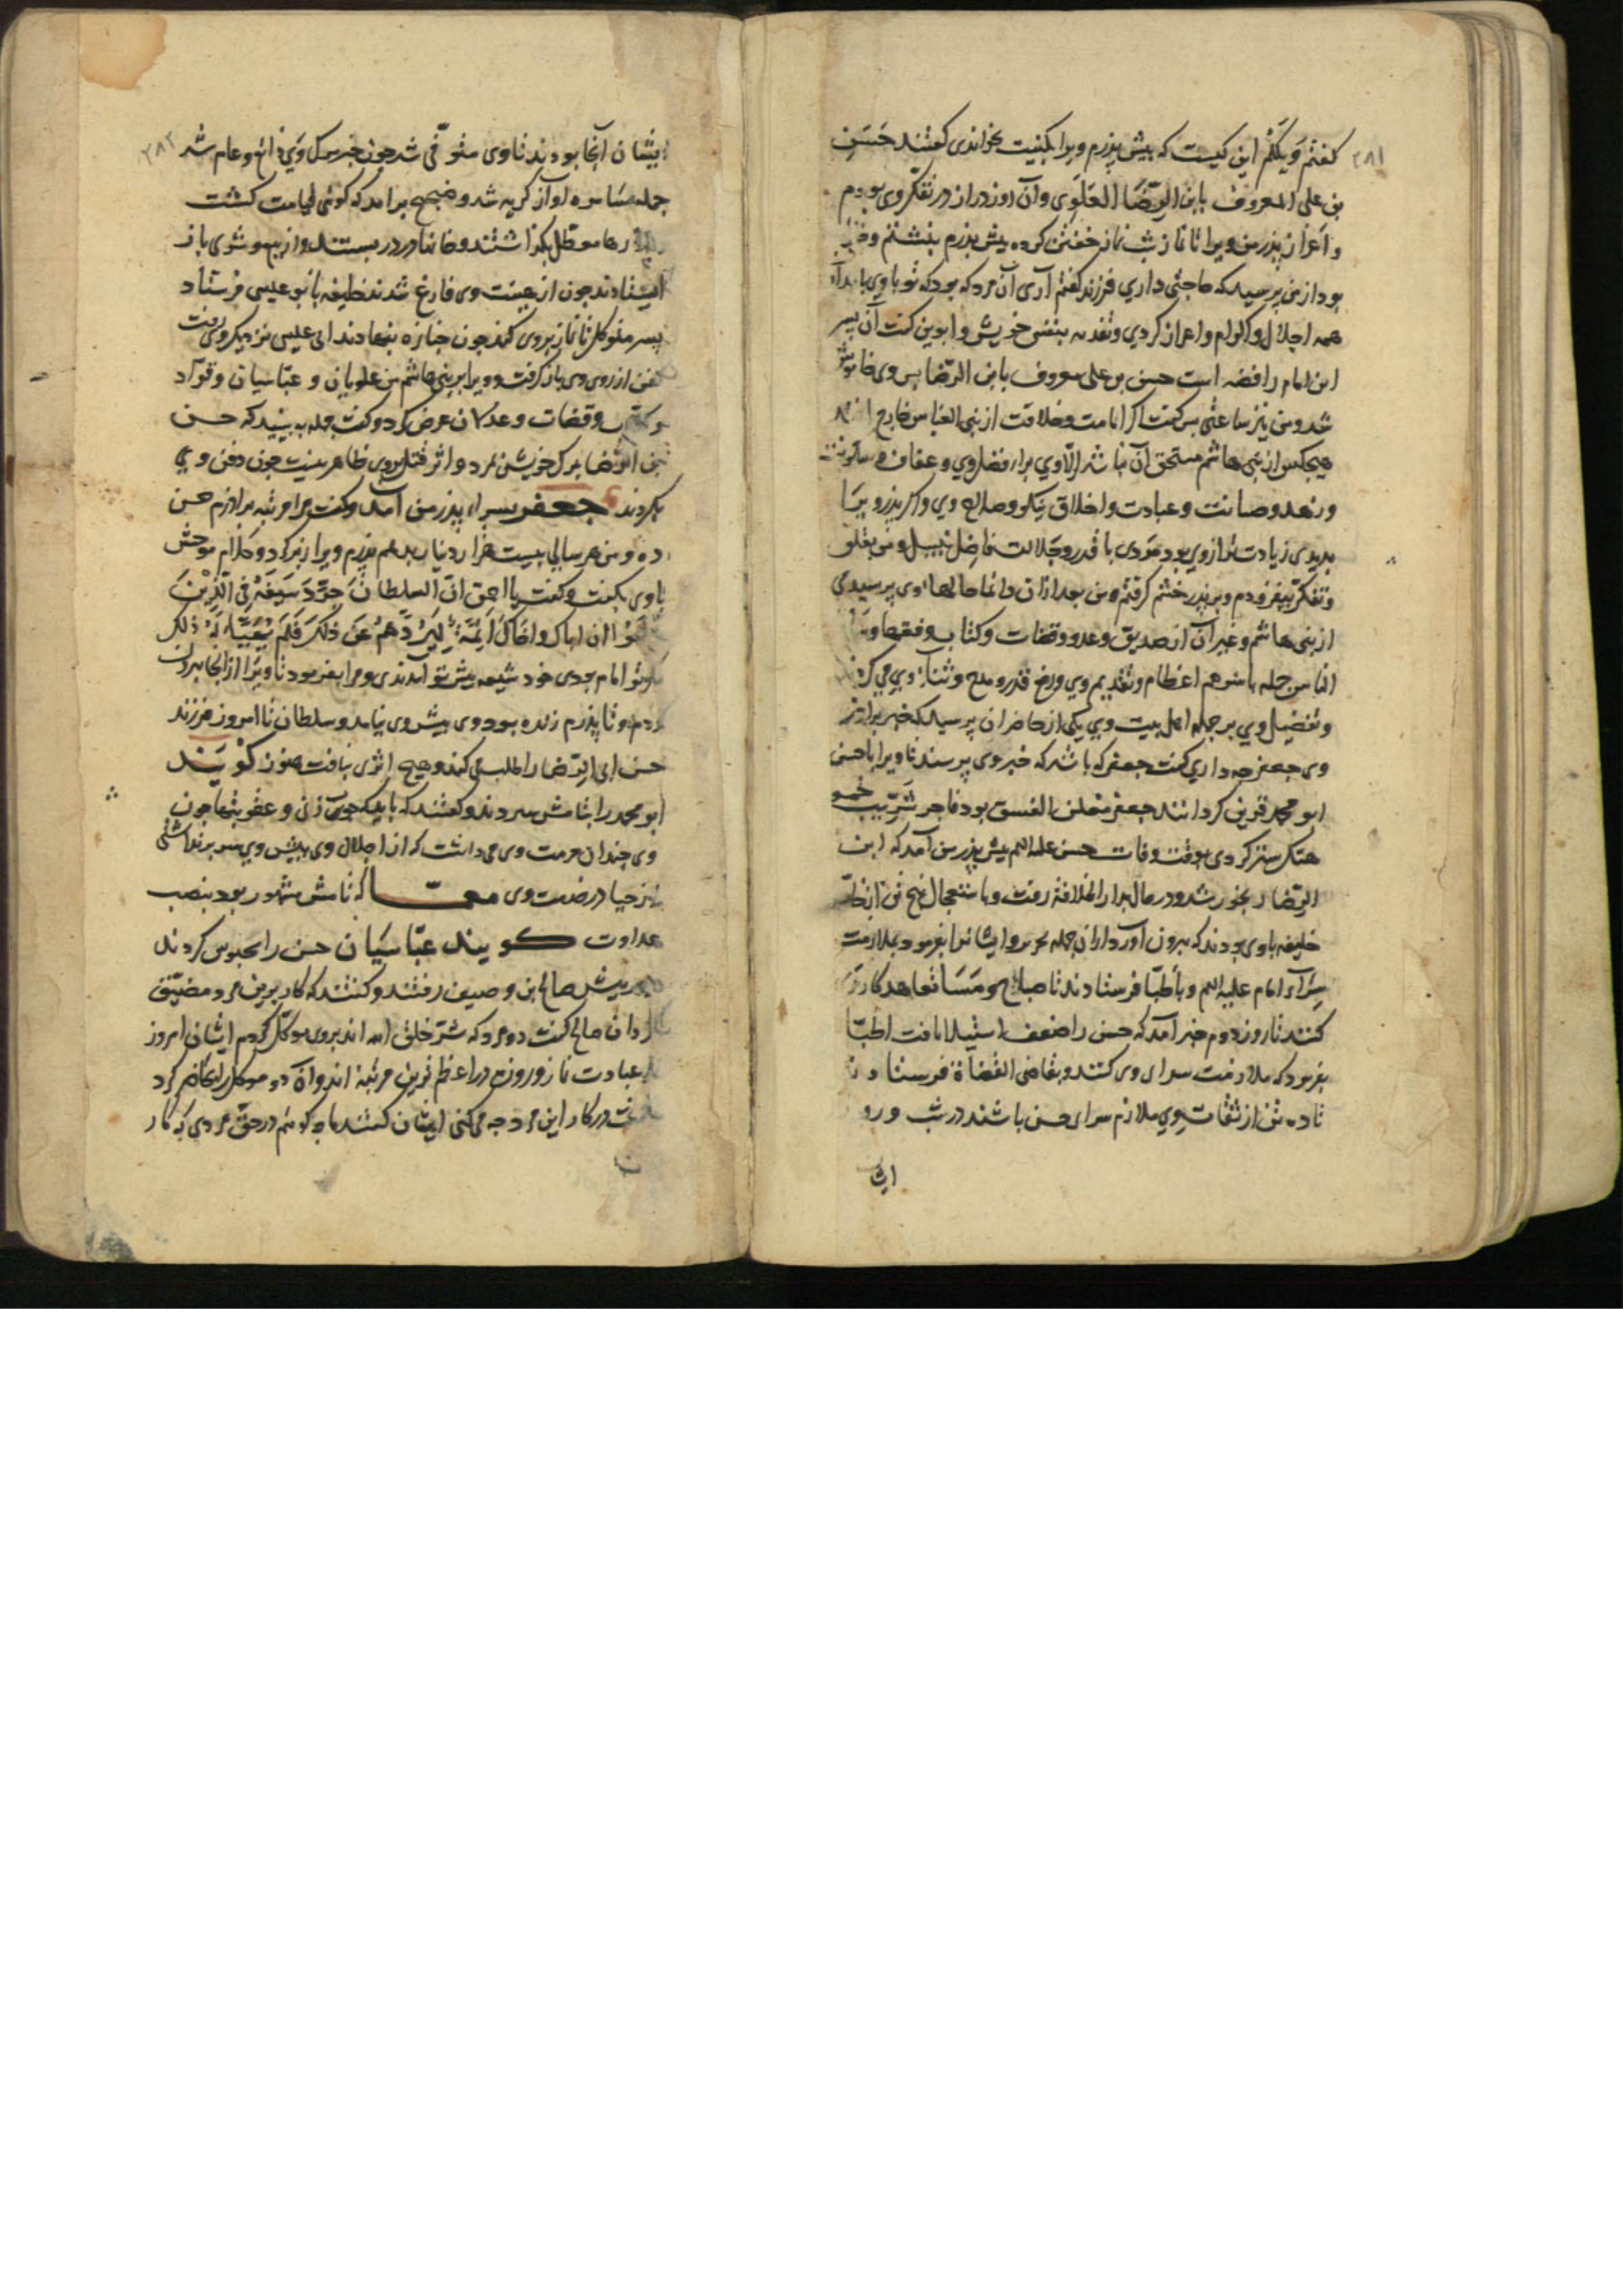 ۲۸۱
کفتم ویلکم این کیست که پیش پذرم ویرا بکنیت بخواندی کفتند حسن
بن علی المعروف بابن الرضا العلوی وآن روز دراز در تفکر وی بوذم
واعزاز پذر من ویرا تا نماز شب نماز خفتن کرده پیش پذرم بنشستم
بود از من پرسید که حاجتی داری فرزند کفتم آری آن مرد که بود که تو با وی بامداد
همه اجلال واکرام واعزاز کردی وتفدیه بنفس خویش وابوین کفت آن پسر
این امام رافضه است حسن بن علی معروف بابن الرضا پس وی خاموش
شد ومن نیز ساعتی پس کفت اکر امامت وخلافت از بنی العباس خارج
هیچکس از بنی هاشم مستحق آن نباشد الا وی برای فضل وی وعفاف
وزهد وصیانت وعبادت واخلاق نیکو وصلاح وی واکر پذر ویرا
بدیدی زیادت تر از وی بود مردی با قدر وجلالت فاضل نبیل ومن بقلق
وتفکر بیفزودم وبر پذر خشم کرفتم ومن بعد از آن دایما حالها وی پرسیدمی
از بنی هاشم وغیر آن از صدیق وعدو وقضات وکتاب وفقها
الناس جمله باسرهم اعظام وتقدیم وی ورفع قدر ومدح وثناء وی می کردند
وتفضیل وی بر جمله اهل بیت وی یکی از حاضران پرسید که خبر برادر
وی جعفر چه داری کفت جعفر که باشد که خبر وی پرسند تا ویرا با حسن
ابو محمد قرین کردانند جعفر معلن الفسق بود فاجر شریب خمر
هتک ستر کردی بوقت وفات حسن علیه السلم پیش پذر من آمد که ابن
الرضا رنجور شد ودر حال بدار الخلافة رفت وباستعجال پنج تن از
خلیفه با وی بودند که بیرون آورد از آن جمله نحریر وایشانرا بفرمود بملازمت
سرای امام علیه السلم وباطبا فرستادند تا صباح ومسا تعاهد کار وی
کنند تا روز دوم خبر آمد که حسن را ضعف استیلا یافت اطبا
بفرمود که ملازمت سرای وی کنند وبقاضی القضاة فرستاد تا
تا ده تن از ثقات وی ملازم سرای حسن باشند در شب ورو
۲۸۲
ایشان آنجا بودند تا وی متوفی شد چون خبر مرک وی فاش وعام شد
جمله سامره آواز کریه شد وضجیج برآمد که کوئی قیامت کشت
بازارها معطل بکذاشتند وخانها در در بستند واز بیع وشری باز
ایستادند چون از هیئت وی فارغ شدند خلیفه بابو عیسی فرستاد
پسر متوکل تا نماز بر وی کند چون جنازه بنهادند ابی عیسی نزدیک وی رفت
کفن از روی وی باز کرفت وویرا بر بنی هاشم من علویان وعباسیان وقواد
وکتاب وقضات وعدلان عرض کرد وکفت جمله ببینید که حسن
بن الرضا بمرک خویش بمرد واثر قتل بروی ظاهر نیست چون دفن وی
بکردند جعفر بسرای پذر من آمد وکفت مرا مرتبه برادرم حسن
ده ومن هر سالی بیست هزار دینار بدهم پذرم ویرا زبر کرد وکلام موحش
با وی بکفت وکفت یا احمق ان السلطان جرد سیفه فی الذین
زعموا ان اباک واخاک ائمة لیردهم عن ذلک فلم یتهیا له ذلک
اکر تو امام بودی خود شیعه پیش تو آمدندی ومرا بفرمود تا ویرا از آنجا بیرون
کردم وتا پذرم زنده بود وی پیش وی نیامد وسلطان تا امروز فرزند
حسن ابن الرضا را طلب می کند وهیچ اثری نیافت هنوز کویند
ابو محمد را بتامش سپردند وکفتند که باید که چوب زنی وعقوبتها چون
وی چندان حرمت وی می داشت که از اجلال وی پیش وی سر بر نداشتی
از حیا در خدمت وی معما که تامش مشهور بود بنصب
عداوت کویند عباسیان حسن را محبوس کردند
پیش صالح بن وصیف رفتند وکفتند که کار برین مرد مضیق
کردان صالح کفت دو مرد که شر خلق الله اند بروی موکل کردم ایشان امروز
در عبادت نماز وروزه در اعظم ترین مرتبه اند وآن دو موکل را حاضر کرد
کفت در کار این مرد چه می کنی ایشان کفتند ما چه کوئیم در حق مردی که کار